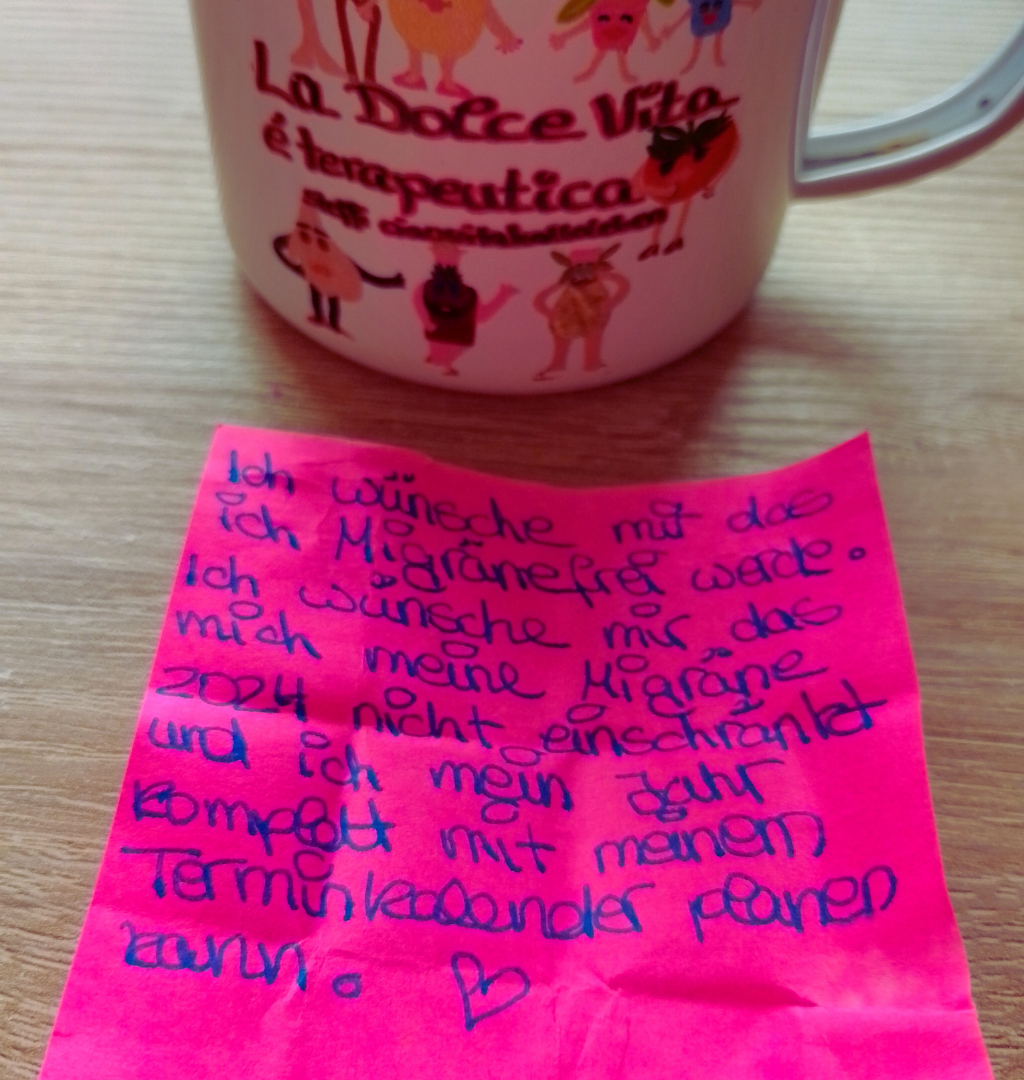 La Dolce Vita
é terapeutica
Ich wünsche mir das
ich Migränefrei werde.
Ich wünsche mir das
mich meine Migräne
2024 nicht einschränkt
und ich mein Jahr
komplett mit meinem
Terminkalender planen
kann.